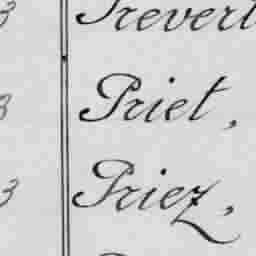 3 Prevert
3 Priet,
3 Priez,